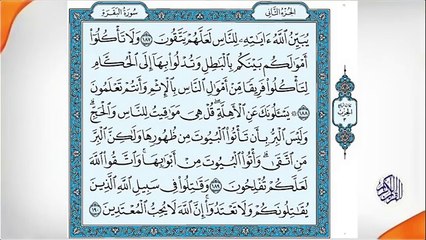 الجزء الثاني
سورة البقرة
يُبَيِّنُ اللَّهُ ءَايَٰتِهِۦ لِلنَّاسِ لَعَلَّهُمْ يَتَّقُونَ ١٨٧ وَلَا تَأْكُلُوٓا۟
أَمْوَٰلَكُم بَيْنَكُم بِٱلْبَٰطِلِ وَتُدْلُوا۟ بِهَآ إِلَى ٱلْحُكَّامِ
لِتَأْكُلُوا۟ فَرِيقًا مِّنْ أَمْوَٰلِ ٱلنَّاسِ بِٱلْإِثْمِ وَأَنتُمْ تَعْلَمُونَ
١٨٨ يَسْـَٔلُونَكَ عَنِ ٱلْأَهِلَّةِ ۖ قُلْ هِىَ مَوَٰقِيتُ لِلنَّاسِ وَٱلْحَجِّ ۗ
وَلَيْسَ ٱلْبِرُّ بِأَن تَأْتُوا۟ ٱلْبُيُوتَ مِن ظُهُورِهَا وَلَٰكِنَّ ٱلْبِرَّ
مَنِ ٱتَّقَىٰ ۗ وَأْتُوا۟ ٱلْبُيُوتَ مِنْ أَبْوَٰبِهَا ۚ وَٱتَّقُوا۟ ٱللَّهَ
لَعَلَّكُمْ تُفْلِحُونَ ١٨٩ وَقَٰتِلُوا۟ فِى سَبِيلِ ٱللَّهِ ٱلَّذِينَ
يُقَٰتِلُونَكُمْ وَلَا تَعْتَدُوٓا۟ ۚ إِنَّ ٱللَّهَ لَا يُحِبُّ ٱلْمُعْتَدِينَ ١٩٠